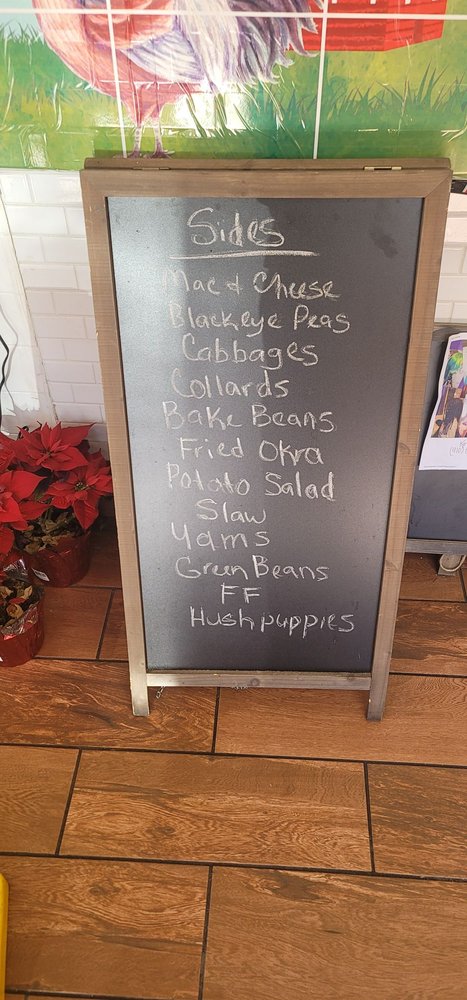 Sides
Mac & Cheese
Blackeye Peas
Cabbages
Collards
Bake Beans
Fried Okra
Potato Salad
Slaw
Yams
Green Beans
FF
Hushpuppies